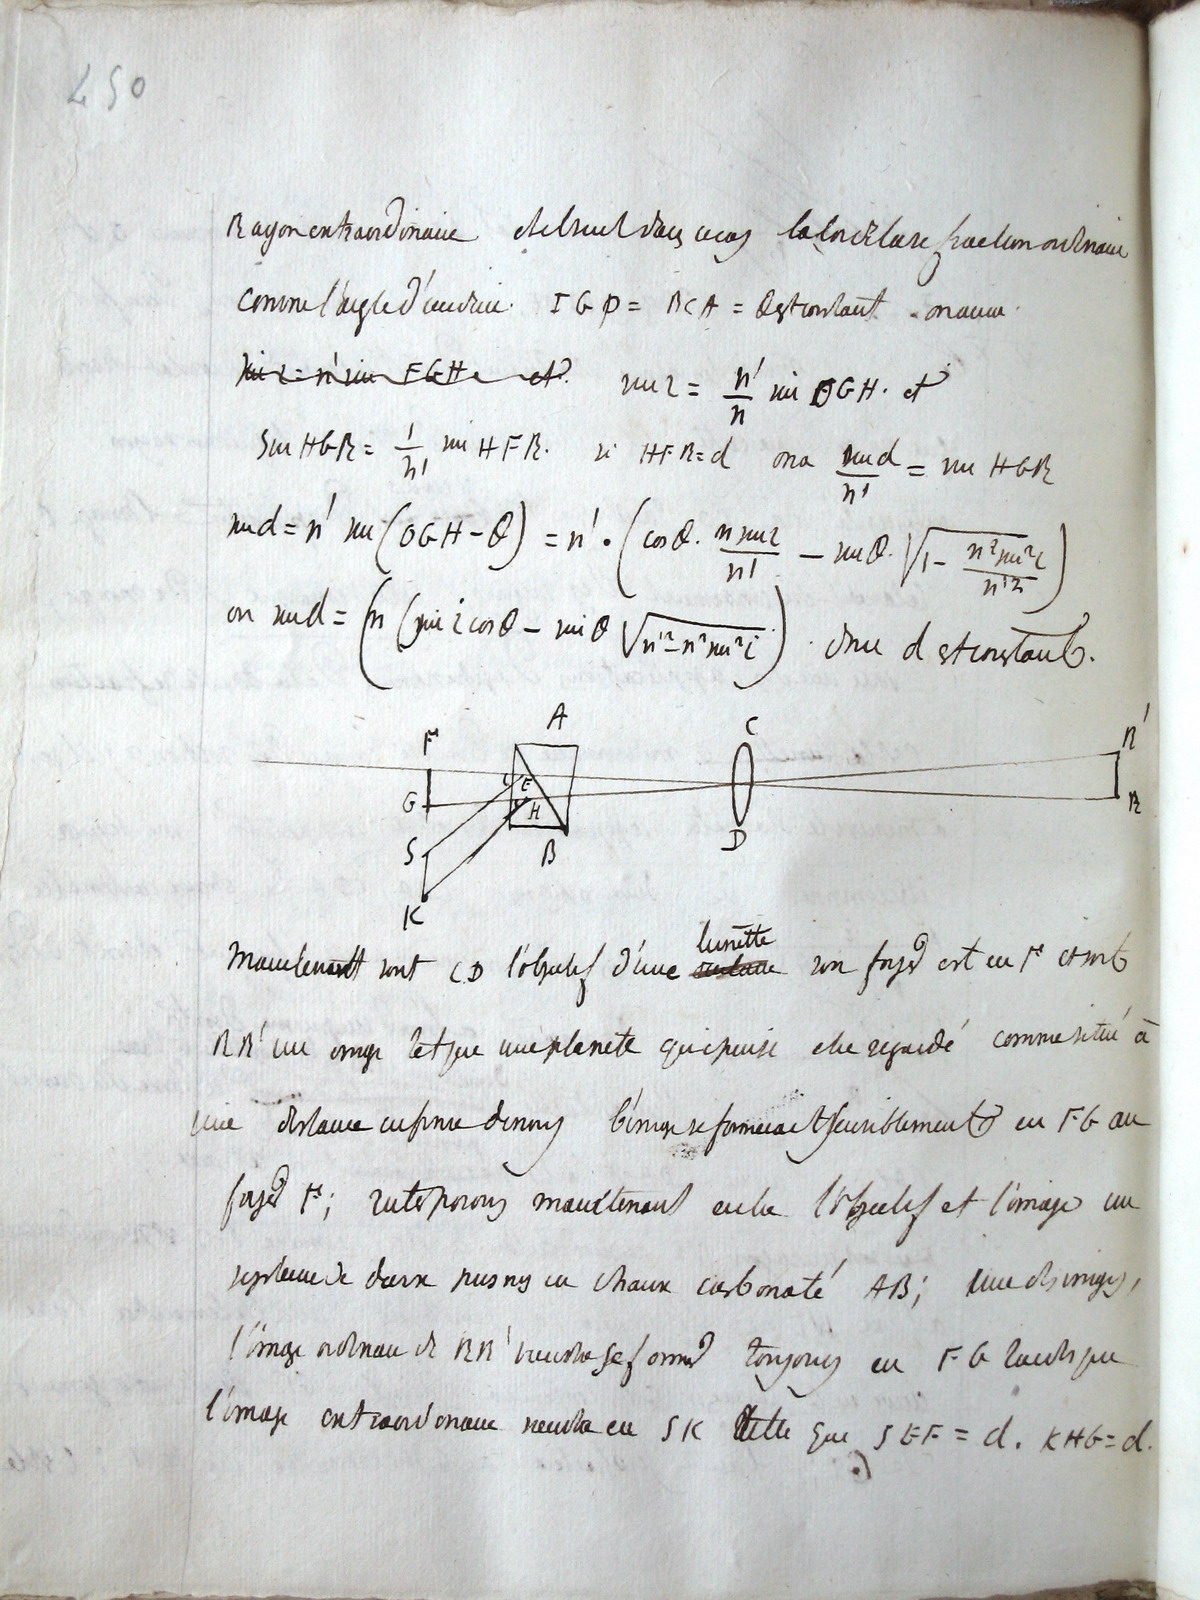 450
Rayon extraordinaire et el suit dans ce cas la loi de la refraction ordinaire
comme l'angle d'incidence I G D = B C A = θ est constant on aura
sin i = n' sin FGH et
sin i = n'/n sin OGH. et
Sin HGR = 1/n' sin HFR. si HFR = d on a sin d/n' = sin HGR
sin d = n' sin (OGH - θ) = n' . (cos θ . n sin i/n' - sin θ . √1 - n² sin² i/n'²)
ou sin d = (n sin i cos θ - sin θ √n'² - n² sin² i) . donc d est constant.
A
C
F
R'
E
G
H
R
S
B
D
K
lunette
Maintenant soit CD l'objectif d'une son foyer est en F et soit
RR' un image tel que une planete qui puisse etre regardé comme situé à
une distance infinie de nous l'image se formera sensiblement en FG au
foyer F; interposons maintenant entre l'objectif et l'image un
systeme de deux prismes en chaux carbonaté AB; l'une des images,
l'image ordinaire de RR' viendra se former toujours en FG tandis que
l'image extraordinaire viendra en SK telle que SEF = d. KHG = d.